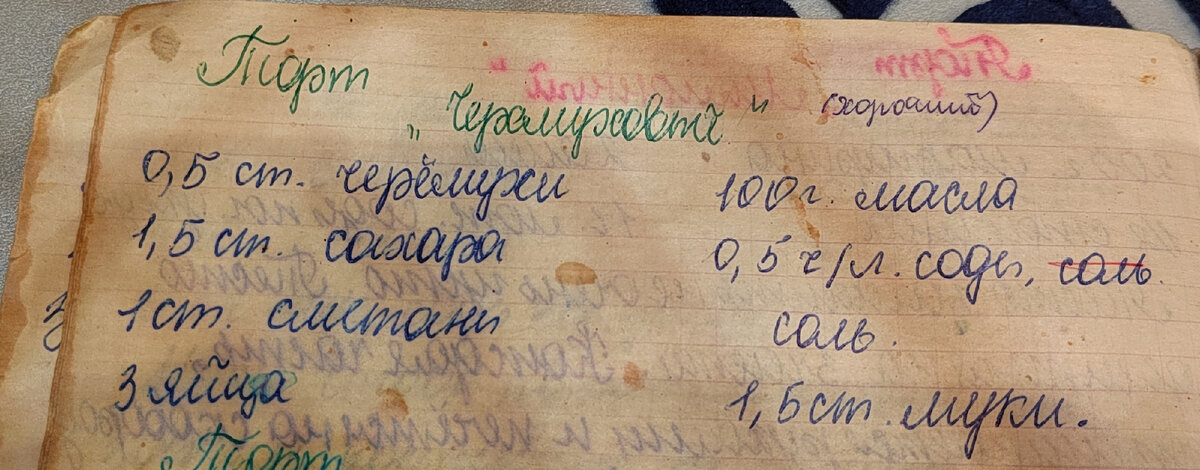 Торт
„Черёмуховый" (хороший)
0,5 ст. черёмухи
1,5 ст. сахара
1 ст. сметаны
3 яйца
100 г. масла
0,5 ч/л. соды, соль.
соль.
1,5 ст. муки.
Торт